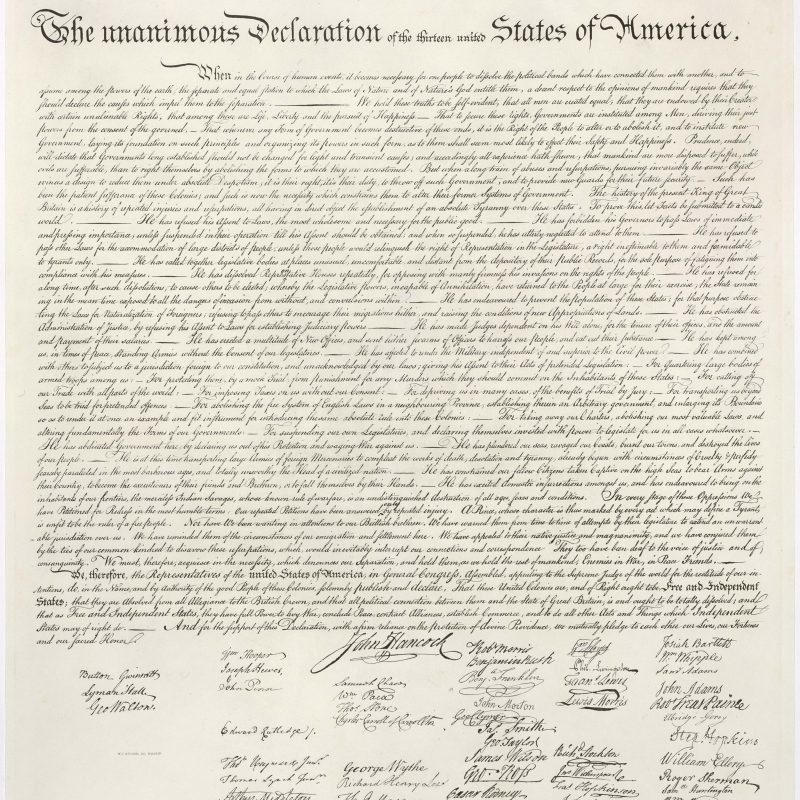 The unanimous Declaration of the thirteen united States of America,
When in the Course of human events, it becomes necessary for one people to dissolve the political bands which have connected them with another, and to
assume among the powers of the earth, the separate and equal station to which the Laws of Nature and of Nature's God entitle them, a decent respect to the opinions of mankind requires that they
should declare the causes which impel them to the separation. — We hold these truths to be self-evident, that all men are created equal, that they are endowed by their Creator
with certain unalienable Rights, that among these are Life, Liberty and the pursuit of Happiness — That to secure these rights, Governments are instituted among Men, deriving their just
powers from the consent of the governed, — That whenever any Form of Government becomes destructive of these ends, it is the Right of the People to alter or to abolish it, and to institute new
Government, laying its foundation on such principles and organizing its powers in such form, as to them shall seem most likely to effect their Safety and Happiness. Prudence, indeed,
will dictate that Governments long established should not be changed for light and transient causes; and accordingly all experience hath shewn, that mankind are more disposed to suffer, while
evils are sufferable, than to right themselves by abolishing the forms to which they are accustomed. But when a long train of abuses and usurpations, pursuing invariably the same Object
evinces a design to reduce them under absolute Despotism, it is their right, it is their duty, to throw off such Government, and to provide new Guards for their future security. — Such has
been the patient sufferance of these Colonies; and such is now the necessity which constrains them to alter their former Systems of Government. The history of the present King of Great
Britain is a history of repeated injuries and usurpations, all having in direct object the establishment of an absolute Tyranny over these States. To prove this, let Facts be submitted to a candid
world. — He has refused his Assent to Laws, the most wholesome and necessary for the public good. — He has forbidden his Governors to pass Laws of immediate
and pressing importance, unless suspended in their operation till his Assent should be obtained; and when so suspended, he has utterly neglected to attend to them. — He has refused to
pass other Laws for the accommodation of large districts of people, unless those people would relinquish the right of Representation in the Legislature, a right inestimable to them and formidable
to tyrants only. — He has called together legislative bodies at places unusual, uncomfortable, and distant from the depository of their public Records, for the sole purpose of fatiguing them into
compliance with his measures. — He has dissolved Representative Houses repeatedly, for opposing with manly firmness his invasions on the rights of the people. — He has refused for
a long time, after such dissolutions, to cause others to be elected; whereby the Legislative powers, incapable of Annihilation, have returned to the People at large for their exercise; the State remain-
ing in the mean time exposed to all the dangers of invasion from without, and convulsions within. — He has endeavoured to prevent the population of these States; for that purpose obstruc-
ting the Laws for Naturalization of Foreigners; refusing to pass others to encourage their migrations hither, and raising the conditions of new Appropriations of Lands. — He has obstructed the
Administration of Justice, by refusing his Assent to Laws for establishing Judiciary powers. — He has made Judges dependent on his Will alone, for the tenure of their offices, and the amount
and payment of their salaries. — He has erected a multitude of New Offices, and sent hither swarms of Officers to harrass our people, and eat out their substance. — He has kept among
us, in times of peace, Standing Armies without the Consent of our legislatures. — He has affected to render the Military independent of and superior to the Civil power. — He has combined
with others to subject us to a jurisdiction foreign to our constitution, and unacknowledged by our laws; giving his Assent to their Acts of pretended Legislation: — For Quartering large bodies of
armed troops among us: — For protecting them, by a mock Trial, from punishment for any Murders which they should commit on the Inhabitants of these States: — For cutting off
our Trade with all parts of the world: — For imposing Taxes on us without our Consent: — For depriving us in many cases, of the benefits of Trial by Jury: — For transporting us beyond
Seas to be tried for pretended offences — For abolishing the free System of English Laws in a neighbouring Province, establishing therein an Arbitrary government, and enlarging its Boundaries
so as to render it at once an example and fit instrument for introducing the same absolute rule into these Colonies: — For taking away our Charters, abolishing our most valuable Laws, and
altering fundamentally the Forms of our Governments: — For suspending our own Legislatures, and declaring themselves invested with power to legislate for us in all cases whatsoever. —
He has abdicated Government here, by declaring us out of his Protection and waging War against us. — He has plundered our seas, ravaged our Coasts, burnt our towns, and destroyed the lives
of our people. — He is at this time transporting large Armies of foreign Mercenaries to compleat the works of death, desolation and tyranny, already begun with circumstances of Cruelty & perfidy
scarcely paralleled in the most barbarous ages, and totally unworthy the Head of a civilized nation. — He has constrained our fellow Citizens taken Captive on the high Seas to bear Arms against
their Country, to become the executioners of their friends and Brethren, or to fall themselves by their Hands. — He has excited domestic insurrections amongst us, and has endeavoured to bring on the
inhabitants of our frontiers, the merciless Indian Savages, whose known rule of warfare, is an undistinguished destruction of all ages, sexes and conditions. In every stage of these Oppressions We
have Petitioned for Redress in the most humble terms: Our repeated Petitions have been answered only by repeated injury. A Prince, whose character is thus marked by every act which may define a Tyrant,
is unfit to be the ruler of a free people. Nor have We been wanting in attentions to our Brittish brethren. We have warned them from time to time of attempts by their legislature to extend an unwarrant-
able jurisdiction over us. We have reminded them of the circumstances of our emigration and settlement here. We have appealed to their native justice and magnanimity, and we have conjured them
by the ties of our common kindred to disavow these usurpations, which, would inevitably interrupt our connections and correspondence. They too have been deaf to the voice of justice and of
consanguinity. We must, therefore, acquiesce in the necessity, which denounces our Separation, and hold them, as we hold the rest of mankind, Enemies in War, in Peace Friends. —
We, therefore, the Representatives of the united States of America, in General Congress, Assembled, appealing to the Supreme Judge of the world for the rectitude of our in-
tentions, do, in the Name, and by Authority of the good People of these Colonies, solemnly publish and declare, That these United Colonies are, and of Right ought to be Free and Independent
States; that they are Absolved from all Allegiance to the British Crown, and that all political connection between them and the State of Great Britain, is and ought to be totally dissolved; and
that as Free and Independent States, they have full Power to levy War, conclude Peace, contract Alliances, establish Commerce, and to do all other Acts and Things which Independent
States may of right do. — And for the support of this Declaration, with a firm reliance on the protection of divine Providence, we mutually pledge to each other our Lives, our Fortunes
and our sacred Honor.
Button Gwinnett
Lyman Hall
Geo Walton.
Wm Hooper
Joseph Hewes,
John Penn
Edward Rutledge /.
Thos Heyward Junr.
Thomas Lynch Junr.
Arthur Middleton
John Hancock
Samuel Chase
Wm Paca
Thos Stone
Charles Carroll of Carrollton
George Wythe
Richard Henry Lee
Robt Morris
Benjamin Rush
Benj. Franklin
John Morton
Geo Clymer
Jas. Smith
Geo. Taylor
James Wilson
Geo. Ross
Caesar Rodney
Wm Floyd
Phil. Livingston
Frans. Lewis
Lewis Morris
Richd. Stockton
Jno Witherspoon
Fras. Hopkinson
Josiah Bartlett
Wm. Whipple
Saml Adams
John Adams
Robt Treat Paine
Elbridge Gerry
Step. Hopkins
William Ellery
Roger Sherman
Saml Huntington